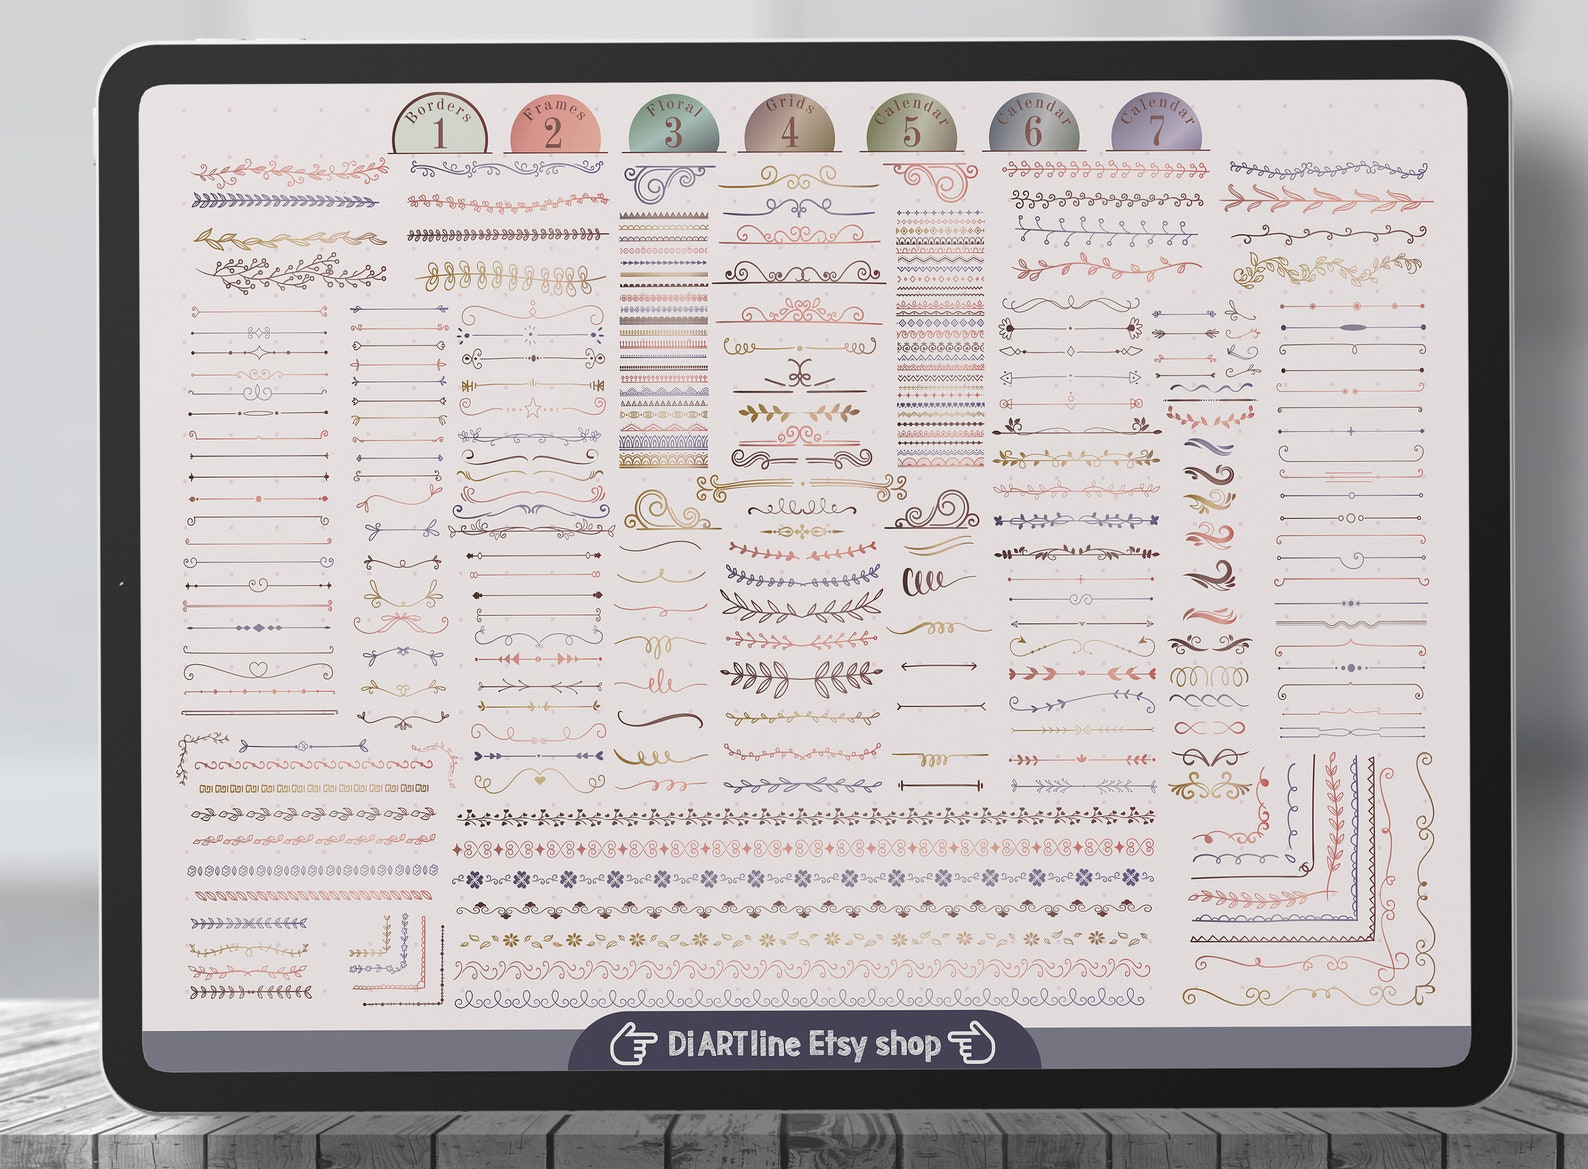 Borders
1
Frames
2
Floral
3
Grids
4
Calendar
5
Calendar
6
Calendar
7
DiARTline Etsy shop